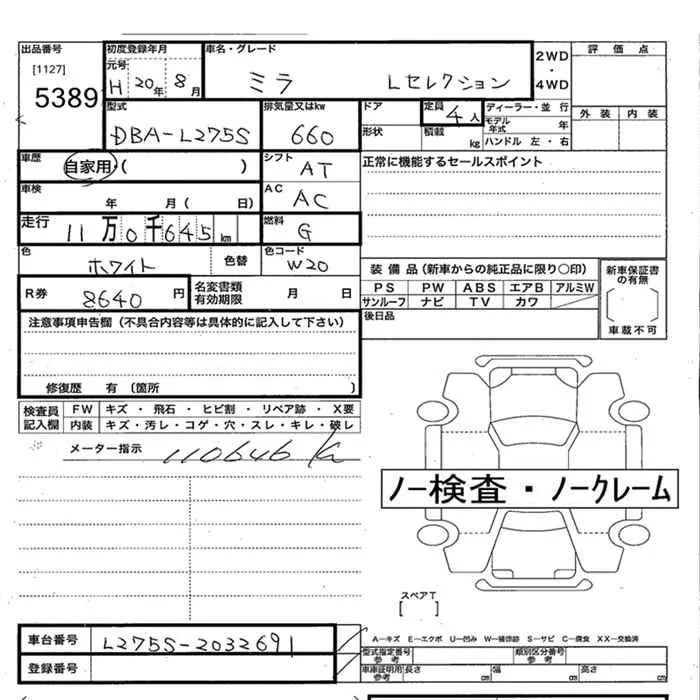 出品番号 初度登録年月 車名・グレード 2WD ・ 4WD 評価点
[1127] 元号 H 20年 8月 ミラ Lセレクション
5389 外装 内装
型式 排気量又はkw ドア 定員 4人 ディーラー・並行
DBA-L275S 660 形状 積載 kg モデル年式 年
ハンドル 左・右
車歴 自家用 ( ) シフト AT 正常に機能するセールスポイント
車検 年 月 ( 日) AC AC
走行 11万0千645km 燃料 G
色 ホワイト 色替 色コード W20
装備品(新車からの純正品に限り〇印) 新車保証書の有無
R券 8640円 名変書類有効期限 月 日 PS PW ABS エアB アルミW
サンルーフ ナビ TV カワ 車載不可
注意事項申告欄(不具合内容等は具体的に記入して下さい) 後日品
修復歴 有 (箇所 )
検査員記入欄 FW キズ・飛石・ヒビ割・リペア跡・X要
内装 キズ・汚レ・コゲ・穴・スレ・キレ・破レ
メーター指示 110646 K
ノー検査・ノークレーム
スペアT
[ ]
車台番号 L275S-2032691 A―キズ E―エクボ U―凹み W―補修跡 S―サビ C―腐食 XX―交換済
登録番号 型式指定番号 参考 類別区分番号 参考
車庫証明用 参考 長さ cm 幅 cm 高さ cm